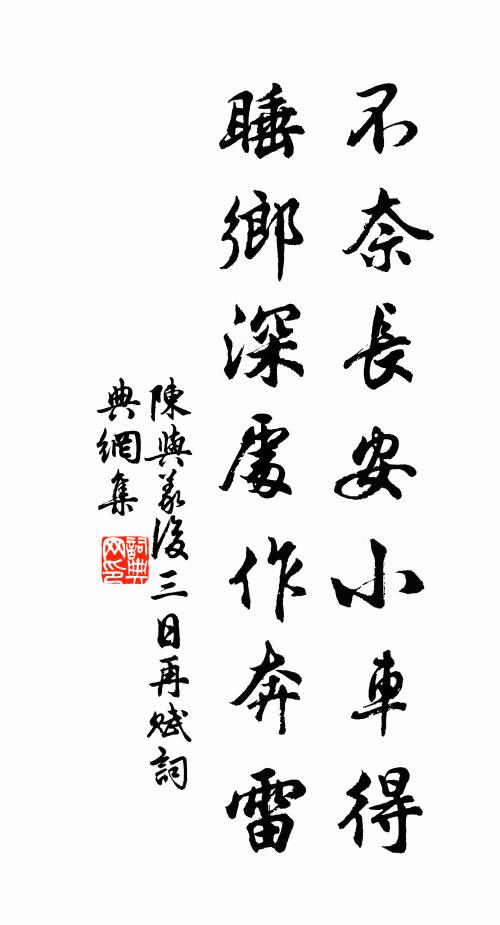 不奈長安小車得
睡鄉深處作奔雷
陳與義後三日再賦詞
典網集
詞典
网印